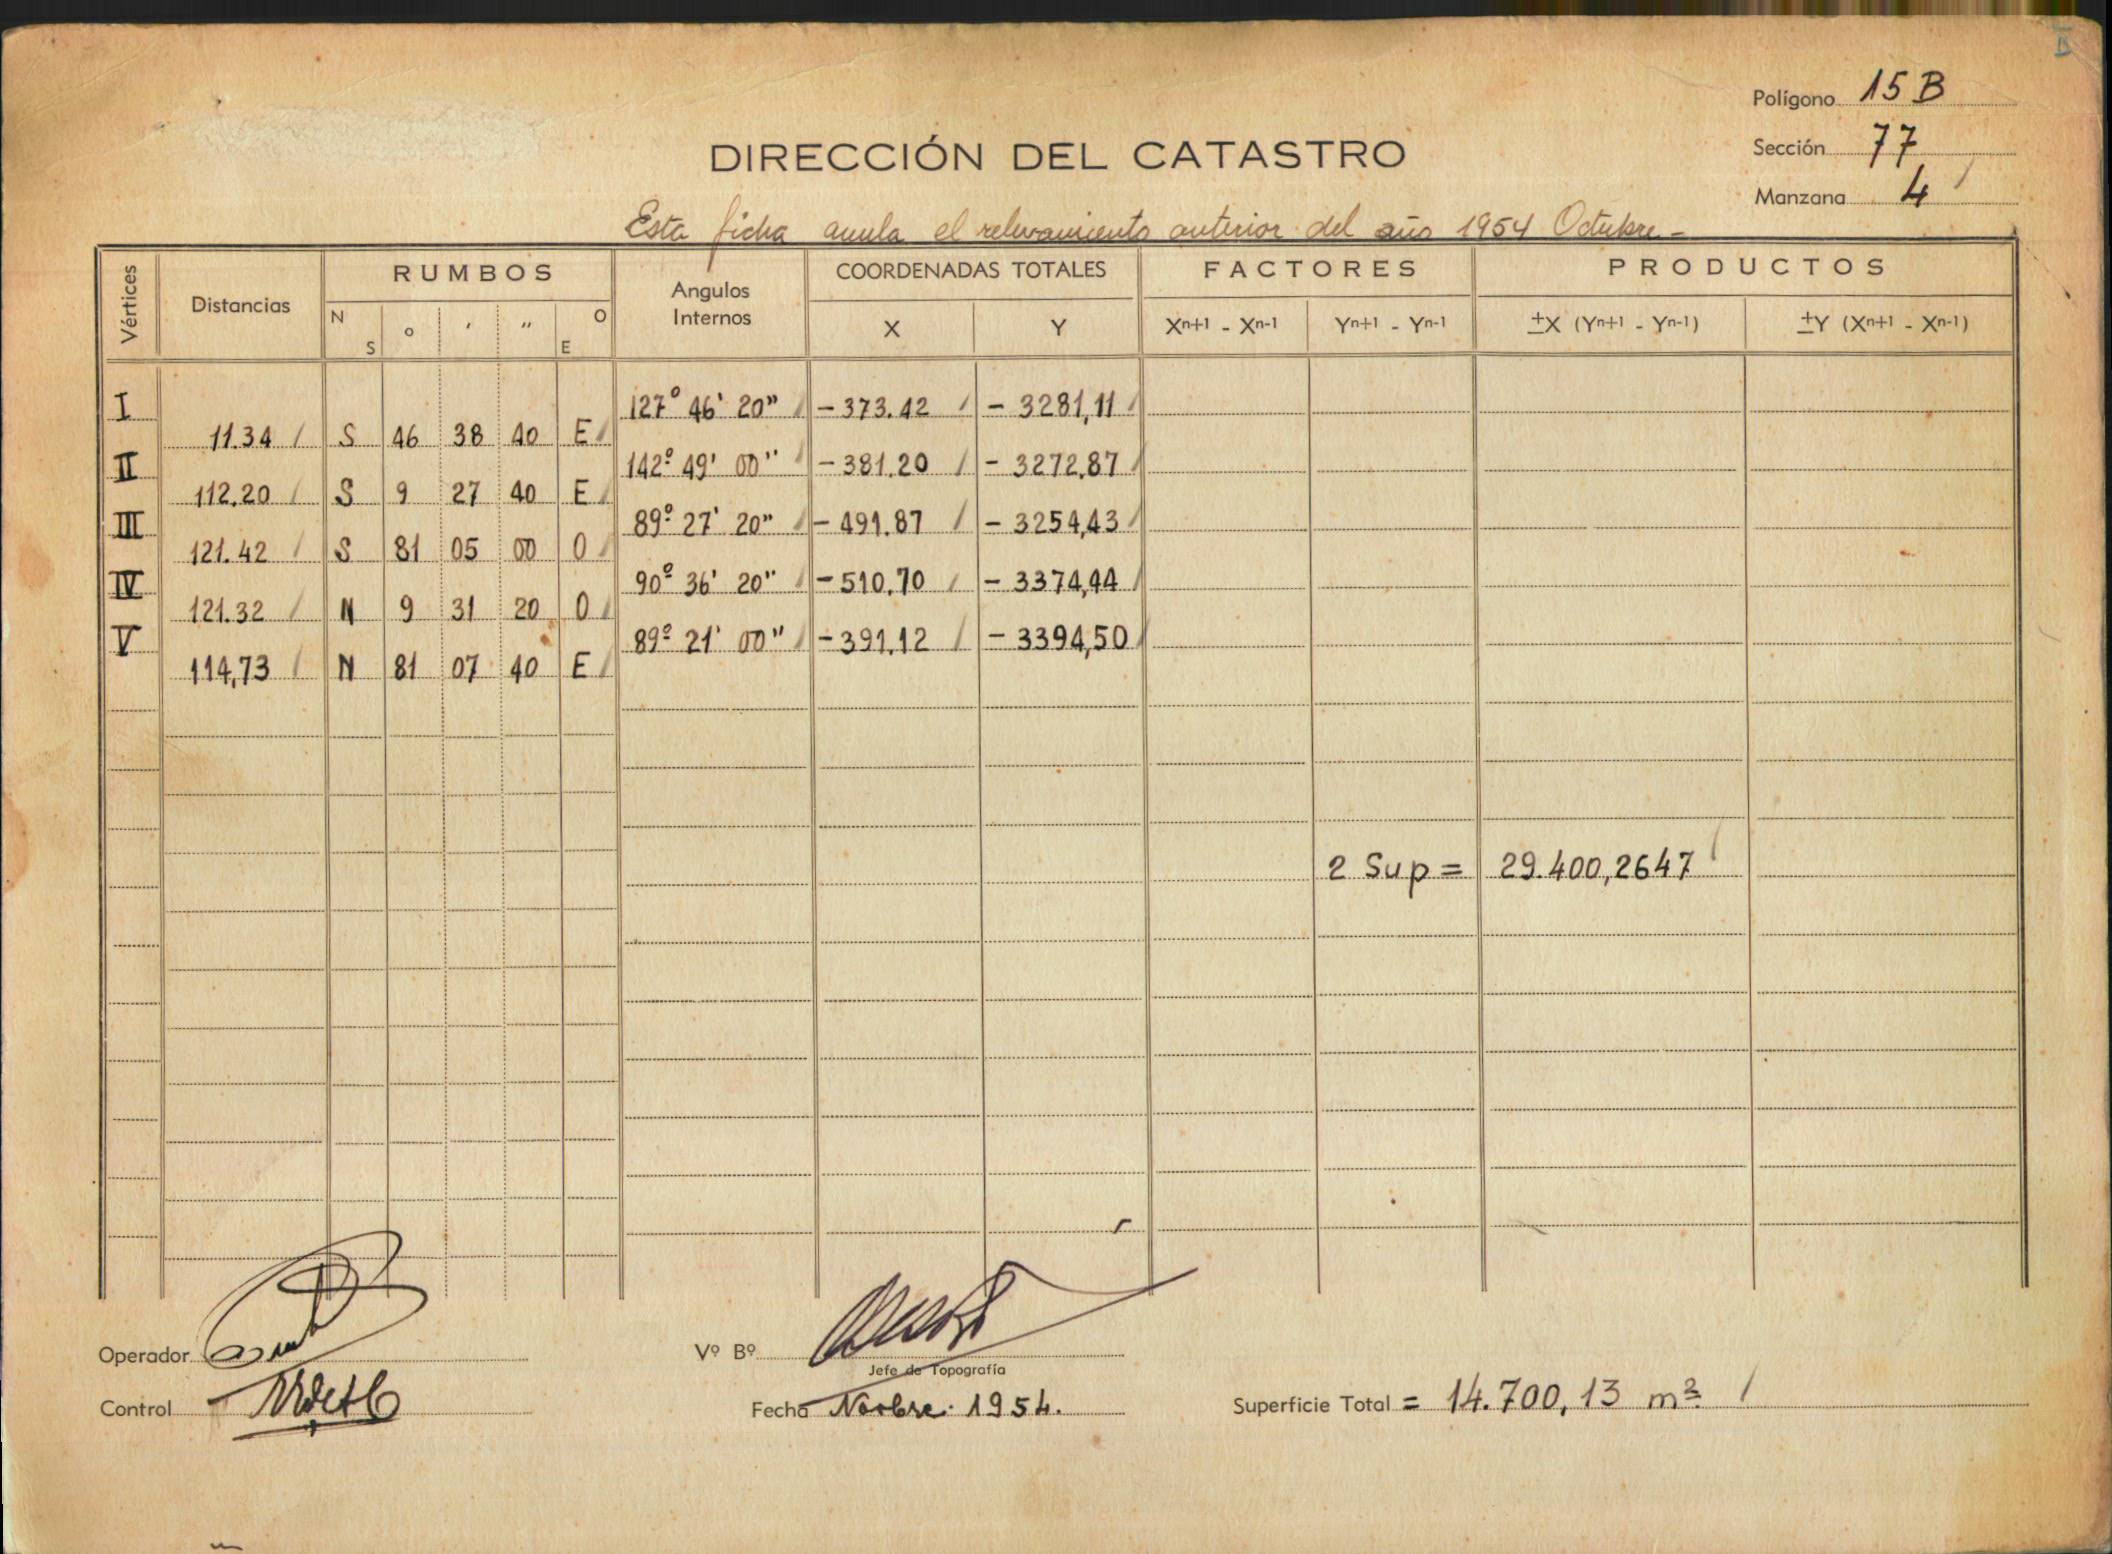 B
Polígono 15 B
Sección 77
Manzana 4
DIRECCIÓN DEL CATASTRO
Esta ficha anula el relevamiento anterior del año 1954 Octubre -
Vértices Distancias RUMBOS Angulos Internos COORDENADAS TOTALES FACTORES PRODUCTOS
N S o ' " O E X Y Xn+1 - Xn-1 Yn+1 - Yn-1 ±X (Yn+1 - Yn-1) ±Y (Xn+1 - Xn-1)
I 127° 46' 20" - 373.42 - 3281,11
11.34 S 46 38 40 E
II 142º 49' 00" - 381.20 - 3272,87
112.20 S 9 27 40 E
III 89º 27' 20" - 491.87 - 3254,43
121.42 S 81 05 00 O
IV 90º 36' 20" - 510,70 - 3374,44
121.32 N 9 31 20 O
V 89º 21' 00" - 391.12 - 3394,50
114,73 N 81 07 40 E
2 Sup = 29.400,2647
Operador
Vº Bº
Jefe de Topografía
Control
Fecha Novbre. 1954.
Superficie Total = 14.700,13 m2